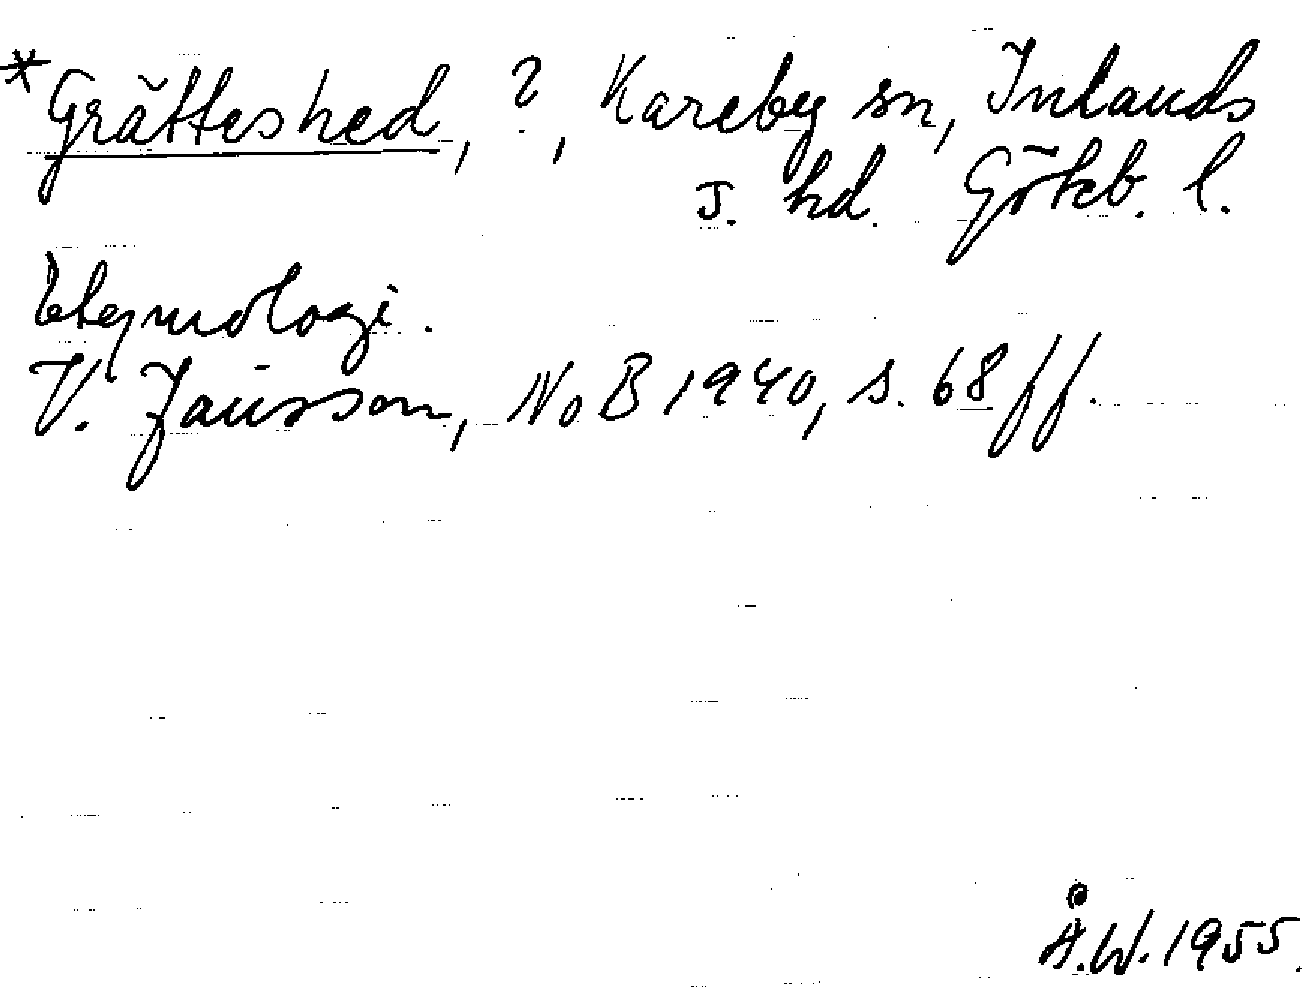 *Grätteshed, ?, Kareby sn, Inlands
s. hd. Göteb. l.
Etymologi.
V. Jansson, NoB 1940, s. 68 ff.
Å.W. 1955.